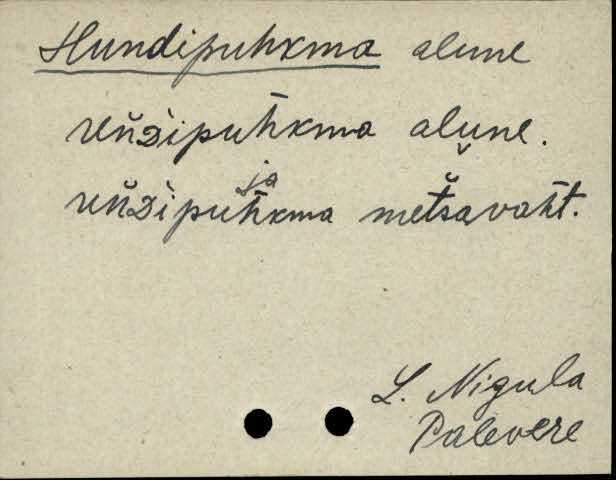 Hundipuhkma alune
uňᴅ̀ipuh̄kma alu̬ne.
uňᴅ̀ipuh̄kma ja metšavah̄t.
L. Nigula
Palevere